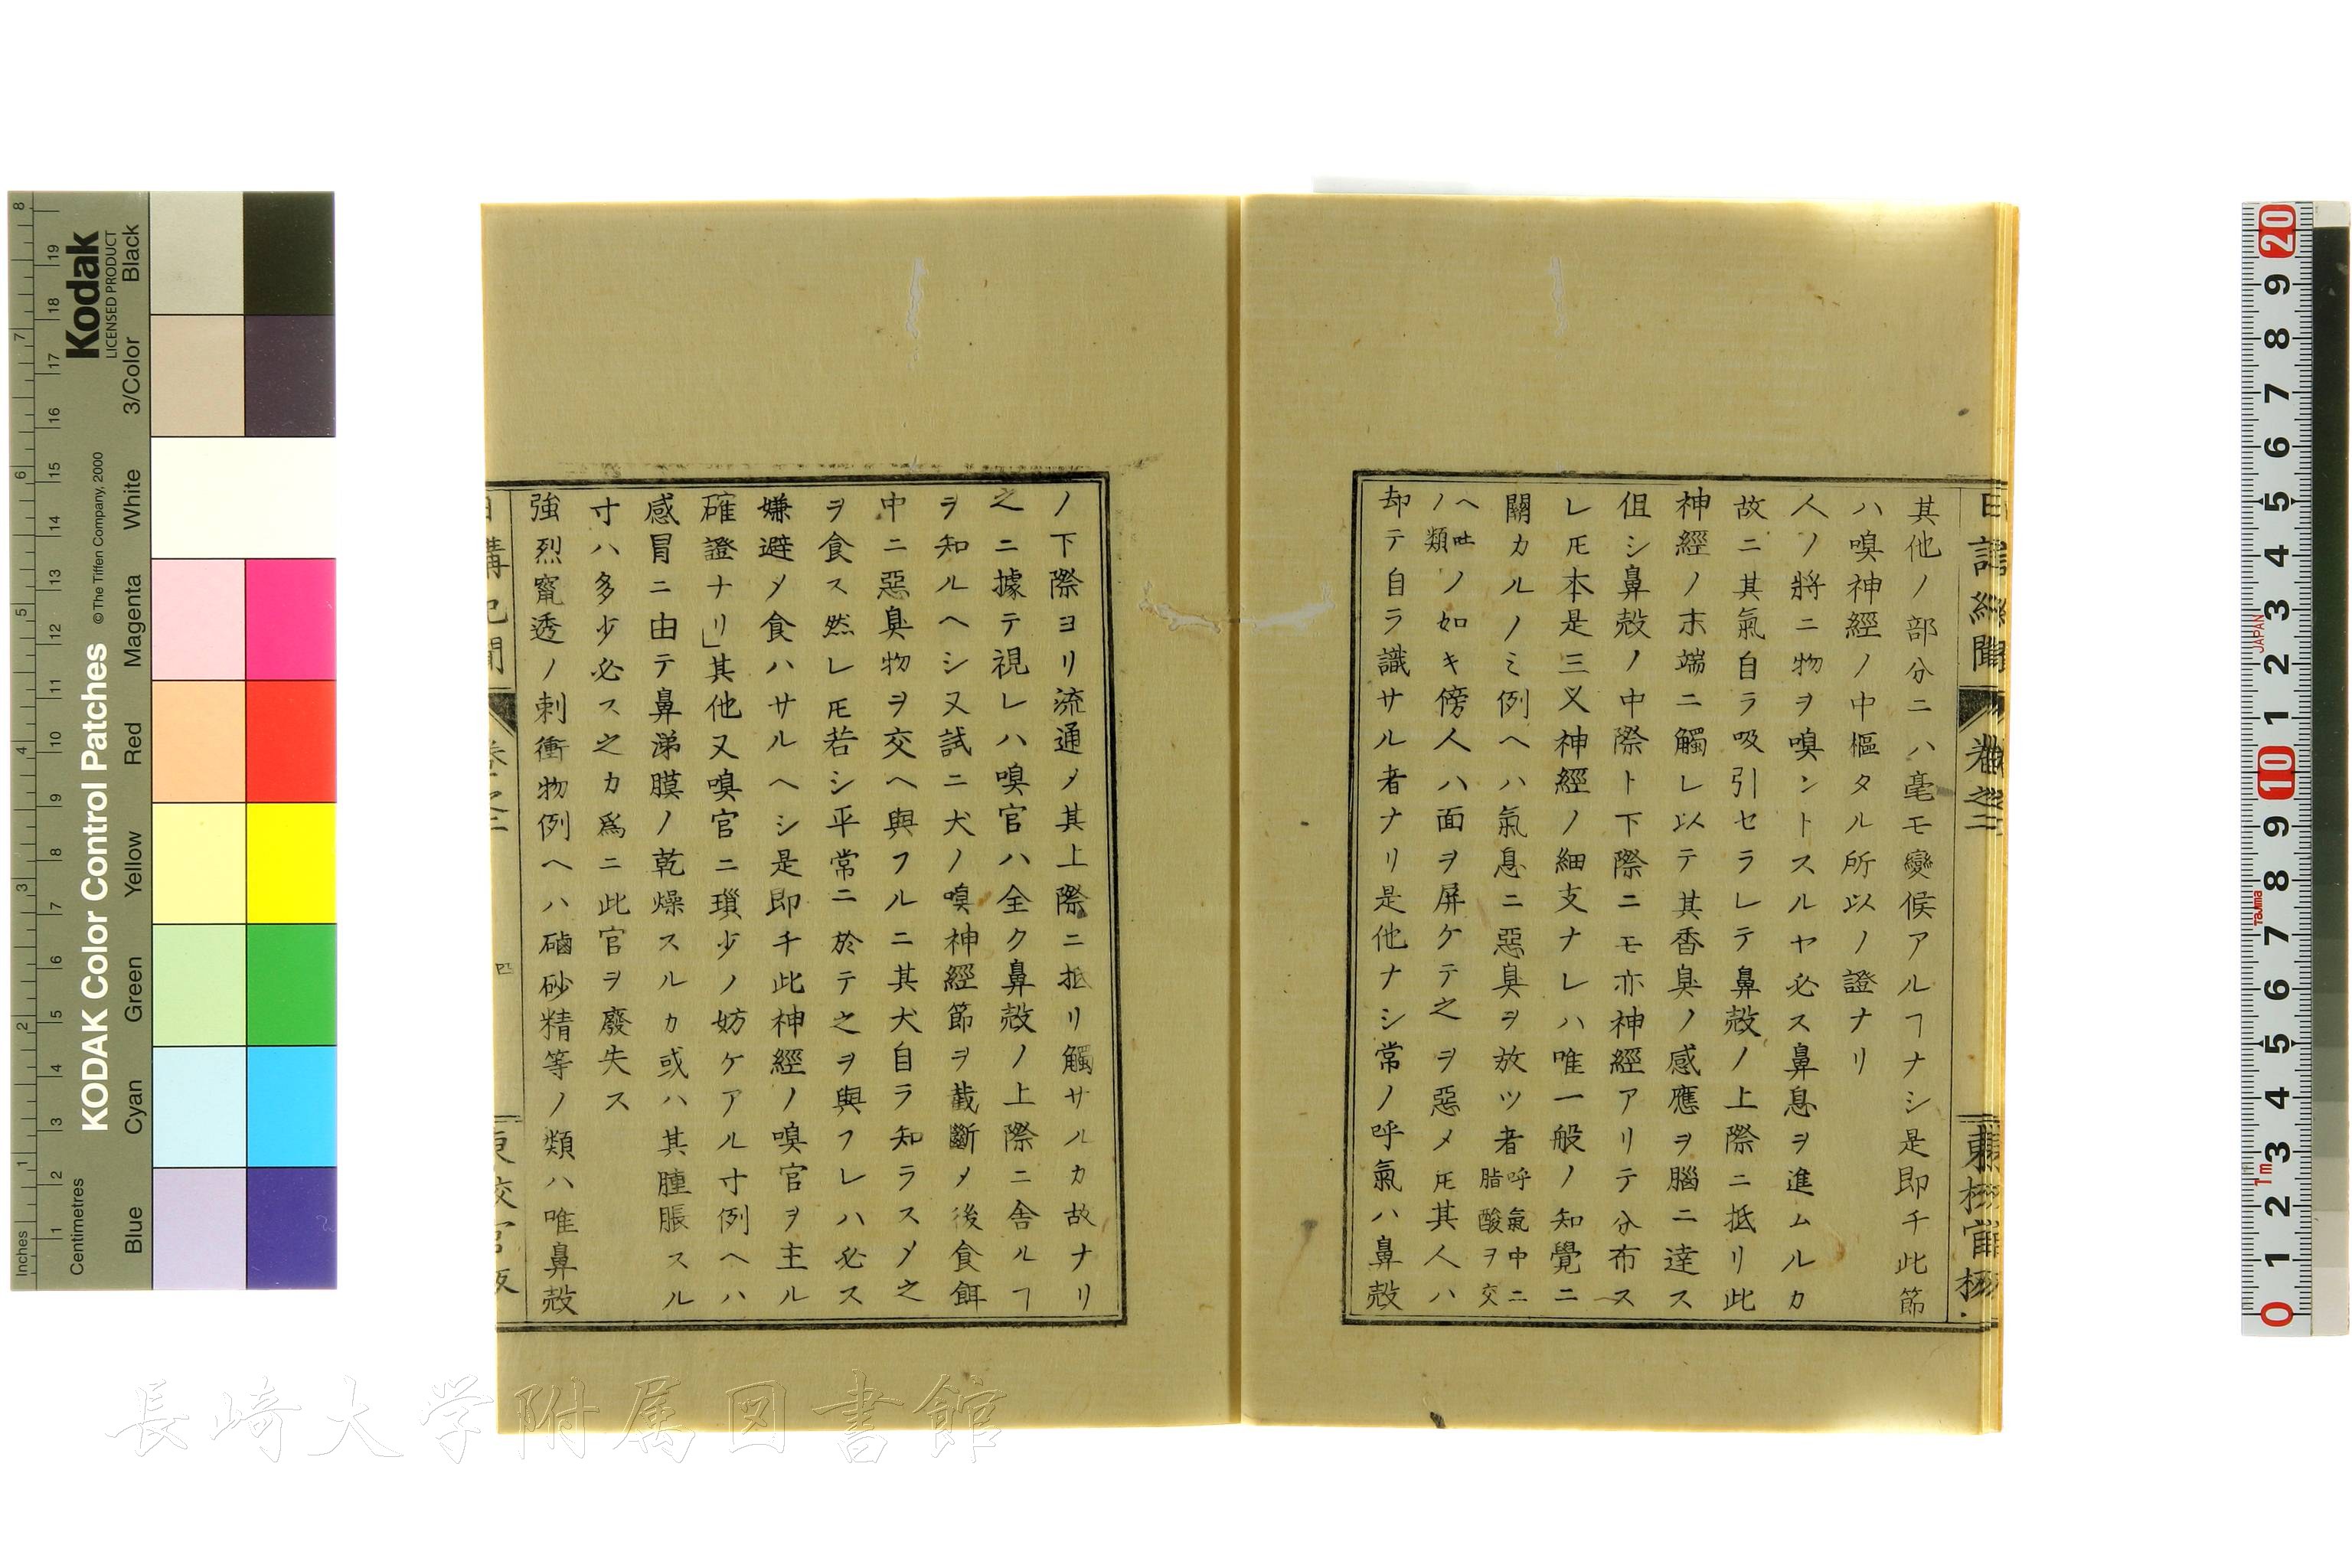 其他ノ部分ニハ毫モ變候アルヿナシ是即チ此節
ハ嗅神經ノ中樞タル所以ノ證ナリ
人ノ將ニ物ヲ嗅ントスルヤ必ス鼻息ヲ進ムルカ
故ニ其氣自ラ吸引セラレテ鼻殻ノ上際ニ抵リ此
神經ノ末端ニ觸レ以テ其香臭ノ感應ヲ腦ニ達ス
但シ鼻殻ノ中際ト下際ニモ亦神經アリテ分布ス
レ𪜈本是三叉神經ノ細支ナレハ唯一般ノ知覺ニ
關カルノミ例ヘハ氣息ニ惡臭ヲ放ツ者呼氣中ニ脂酸ヲ交
ヘ吐ノ類ノ如キ傍人ハ面ヲ屏ケテ之ヲ惡メ𪜈其人ハ
却テ自ラ識サル者ナリ是他ナシ常ノ呼氣ハ鼻殻
ノ下際ヨリ流通〆其上際ニ抵リ觸サルカ故ナリ
之ニ據テ視レハ嗅官ハ全ク鼻殻ノ上際ニ舍ルヿ
ヲ知ルヘシ又試ニ犬ノ嗅神經節ヲ截斷〆後食餌
中ニ惡臭物ヲ交ヘ與フルニ其犬自ラ知ラス〆之
ヲ食ス然レ𪜈若シ平常ニ於テ之ヲ與フレハ必ス
嫌避〆食ハサルヘシ是即チ此神經ノ嗅官ヲ主ル
確證ナリ」其他又嗅官ニ瑣少ノ妨ケアル寸例ヘハ
感冒ニ由テ鼻涕膜ノ乾燥スルカ或ハ其腫脹スル
寸ハ多少必ス之カ爲ニ此官ヲ廢失ス
強烈竄透ノ刺衝物例ヘハ磠砂精等ノ類ハ唯鼻殻
日講記聞
卷之二
四
Kodak
LICENSED PRODUCT
KODAK Color Control Patches
© The Tiffen Company, 2000
Inches
Centimetres
Blue
Cyan
Green
Yellow
Red
Magenta
White
3/Color
Black
長崎大学附属図書館
JAPAN
Tajima
1m